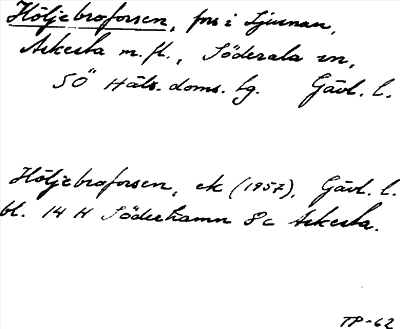 Höljebroforsen, fors i Ljusnan,
Askesta m. fl., Söderala sn,
SÖ Häls. doms. tg. Gävl. l.
Höljebroforsen, ek (1957), Gävl. l.
bl. 14 H Söderhamn 8c Askesta.
TP-62